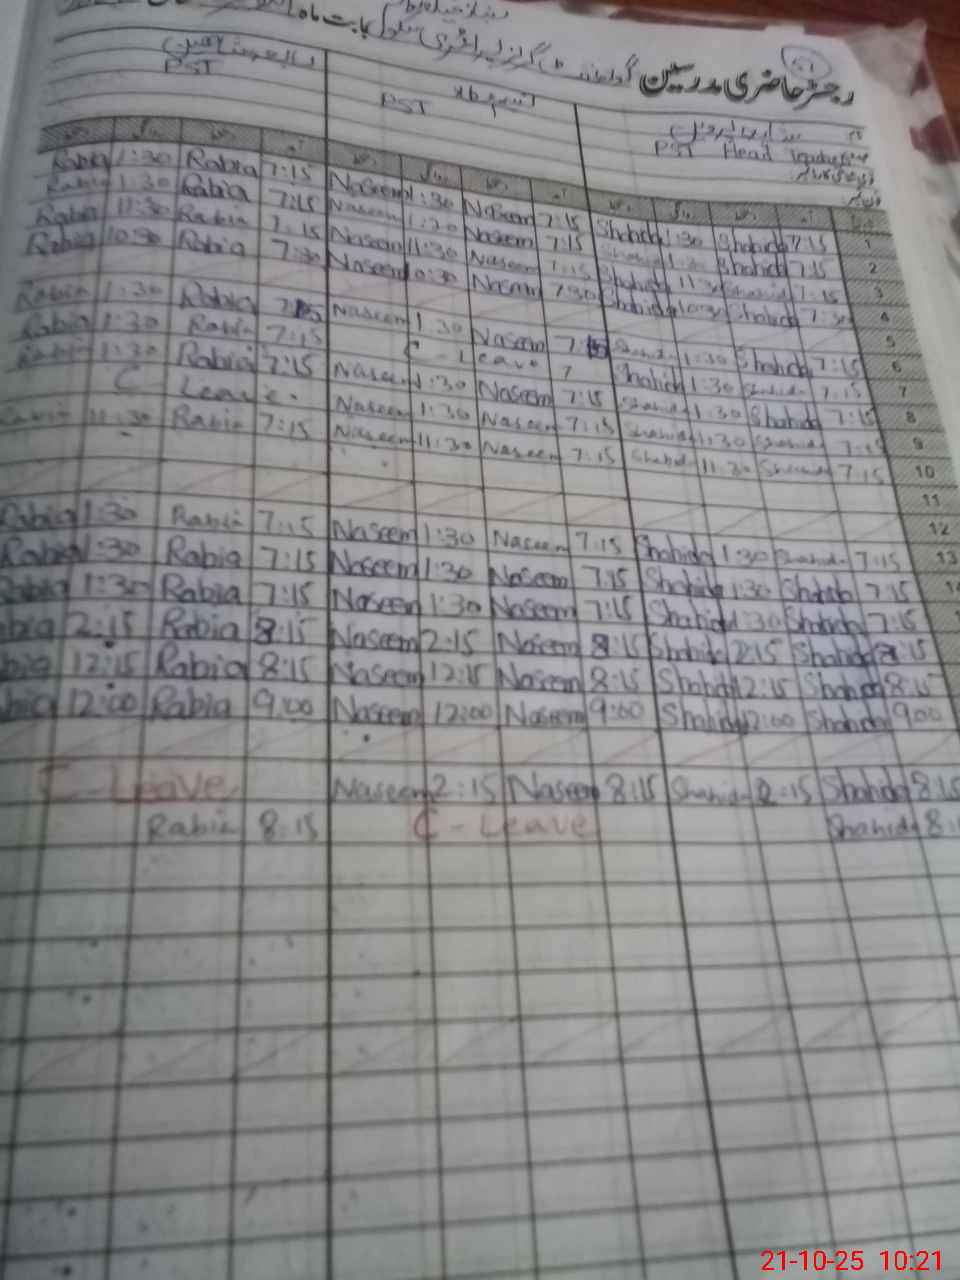 رجسٹر حاضری مدرسین
PST PST PST Head
Rabia 1:30 Rabia 7:15 Naseem 1:30 Naseem 7:15 Shahida 1:30 Shahida 7:15 1
Rabia 1:30 Rabia 7:15 Naseem 1:30 Naseem 7:15 Shahida 1:30 Shahida 7:15 2
Rabia 11:30 Rabia 7:15 Naseem 11:30 Naseem 7:15 Shahida 11:30 Shahida 7:15 3
Rabia 10:30 Rabia 7:30 Naseem 10:30 Naseem 7:30 Shahida 10:30 Shahida 7:30 4
5
Rabia 1:30 Rabia 7:15 Naseem 1:30 Naseem 7:15 Shahida 1:30 Shahida 7:15 6
Rabia 1:30 Rabia 7:15 C - Leave Shahida 1:30 Shahida 7:15 7
Rabia 1:30 Rabia 7:15 Naseem 1:30 Naseem 7:15 Shahida 1:30 Shahida 7:15 8
C Leave. Naseem 1:30 Naseem 7:15 Shahida 1:30 Shahida 7:15 9
Rabia 11:30 Rabia 7:15 Naseem 11:30 Naseem 7:15 Shahida 11:30 Shahida 7:15 10
11
12
Rabia 1:30 Rabia 7:15 Naseem 1:30 Naseem 7:15 Shahida 1:30 Shahida 7:15 13
Rabia 1:30 Rabia 7:15 Naseem 1:30 Naseem 7:15 Shahida 1:30 Shahida 7:15
Rabia 1:30 Rabia 7:15 Naseem 1:30 Naseem 7:15 Shahida 1:30 Shahida 7:15
Rabia 2:15 Rabia 8:15 Naseem 2:15 Naseem 8:15 Shahida 2:15 Shahida 8:15
Rabia 12:15 Rabia 8:15 Naseem 12:15 Naseem 8:15 Shahida 12:15 Shahida 8:15
Rabia 12:00 Rabia 9:00 Naseem 12:00 Naseem 9:00 Shahida 12:00 Shahida 9:00
C - Leave Naseem 2:15 Naseem 8:15 Shahida 2:15 Shahida 8:15
Rabia 8:15 C - Leave Shahida 8:1
21-10-25 10:21